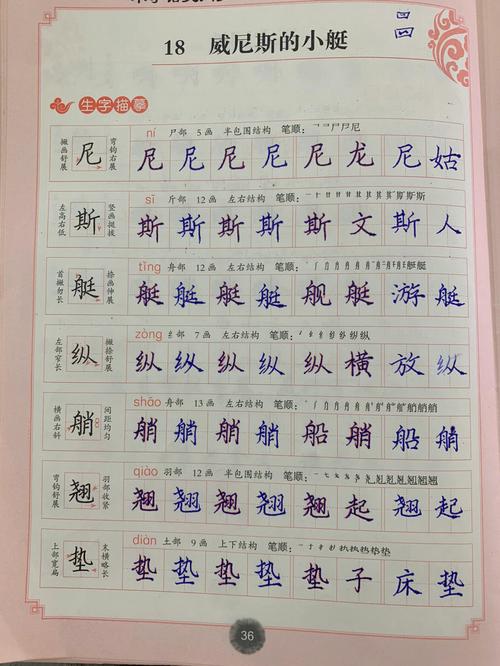 18 威尼斯的小艇
四
四
生字描摹
ní 尸部 5画 半包围结构 笔顺:
撇画舒展 尼 弯钩右展 尼 尼 尼 尼 尼 龙 尼 姑
sī 斤部 12画 左右结构 笔顺:
左高右低 斯 竖画挺拔 斯 斯 斯 斯 斯 文 斯 人
tǐng 舟部 12画 左右结构 笔顺:
首撇勿长 艇 捺画伸展 艇 艇 艇 艇 舰 艇 游 艇
zòng 纟部 7画 左右结构 笔顺:
左部窄长 纵 撇捺舒展 纵 纵 纵 纵 纵 横 放 纵
shāo 舟部 13画 左右结构 笔顺:
横画右斜 艄 间距均匀 艄 艄 艄 艄 船 艄 船 艄
qiào 羽部 12画 半包围结构 笔顺:
弯钩舒展 翘 羽部收紧 翘 翘 翘 翘 翘 起 翘 起
diàn 土部 9画 上下结构 笔顺:
上部宽扁 垫 末横略长 垫 垫 垫 垫 垫 子 床 垫
36